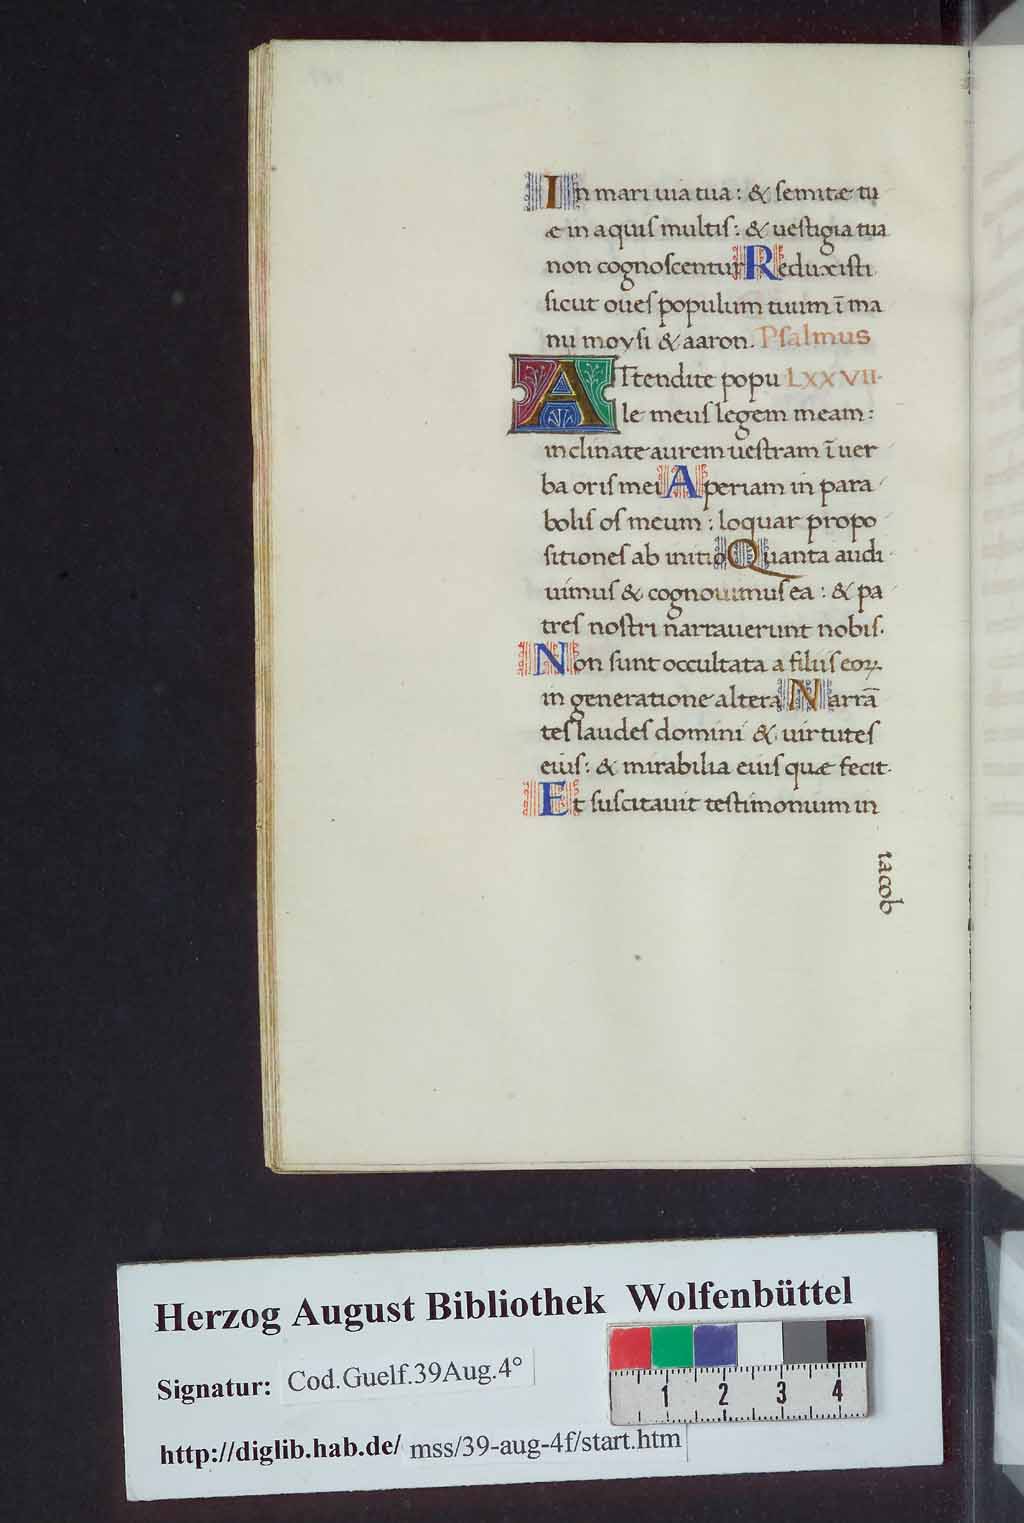 In mari uia tua : & semitæ tu
æ in aquis multis : & uestigia tua
non cognoscentur Reduxisti
sicut oues populum tuum ī ma
nu moysi & aaron. Psalmus
ATtendite popu LXXVII.
le meus legem meam :
inclinate aurem uestram ī uer
ba oris mei Aperiam in para
bolis os meum : loquar propo
sitiones ab initio Quanta audi
uimus & cognouimus ea : & pa
tres nostri narrauerunt nobis.
Non sunt occultata a filiis eoꝝ.
in generatione altera Narrā
tes laudes domini & uirtutes
eius : & mirabilia eius quæ fecit.
Et suscitauit testimonium in
iacob
Herzog August Bibliothek Wolfenbüttel
Signatur: Cod.Guelf.39Aug.4°
http://diglib.hab.de/ mss/39-aug-4f/start.htm
1 2 3 4